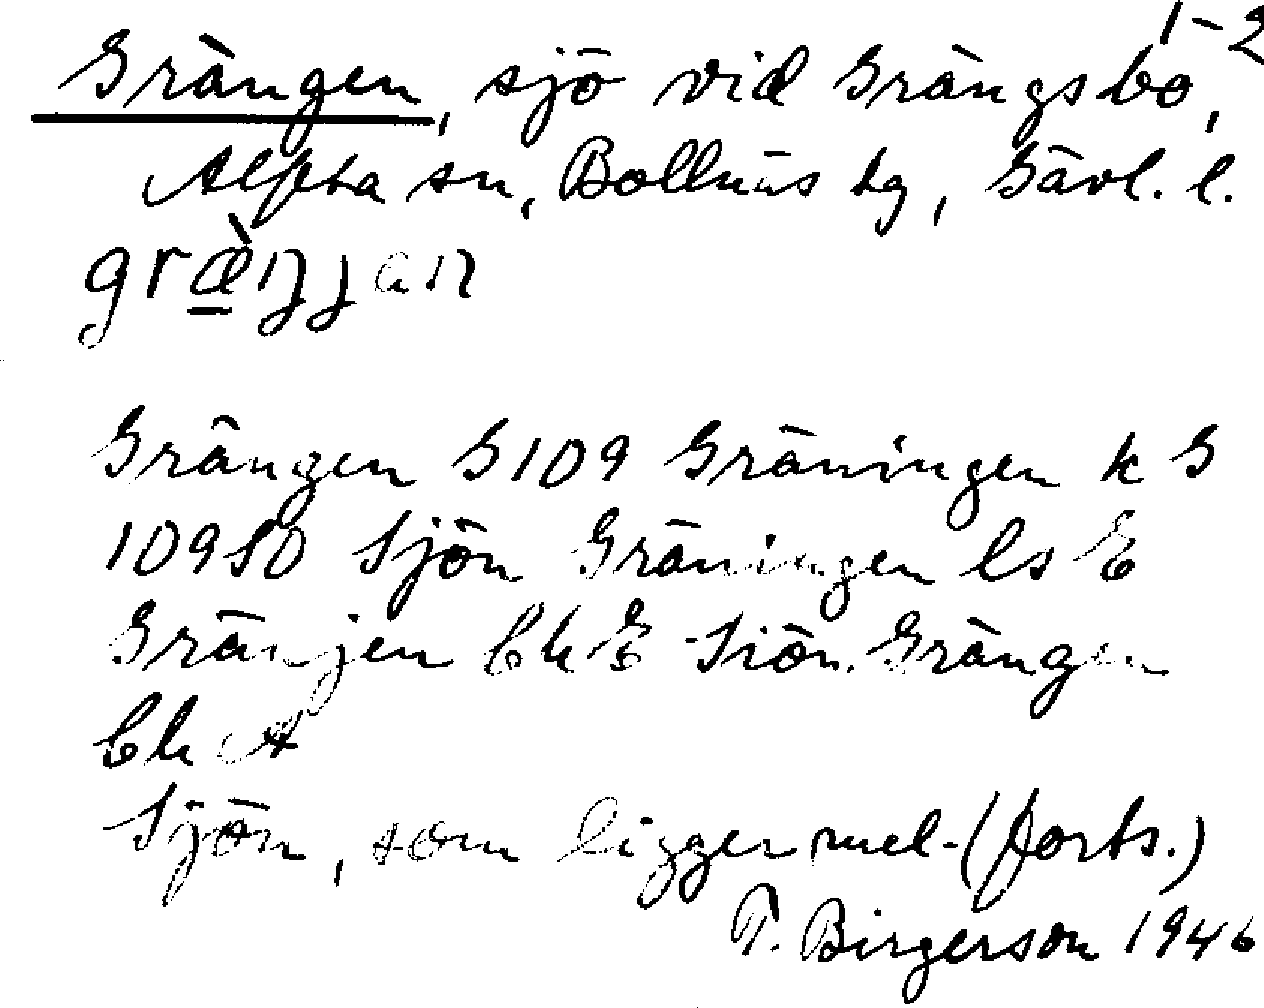 1-2
Grängen, sjö vid Grängsbo,
Alfta sn, Bollnäs tg, Gävl. l.
græ̀ŋjan
Grängen G109 Gräningen k G
10950 Sjön Gräningen ls E
Gränjen Ck E Siön Grängen
Ck A
Sjön, som ligger mel- (forts.)
T. Birgerson 1946